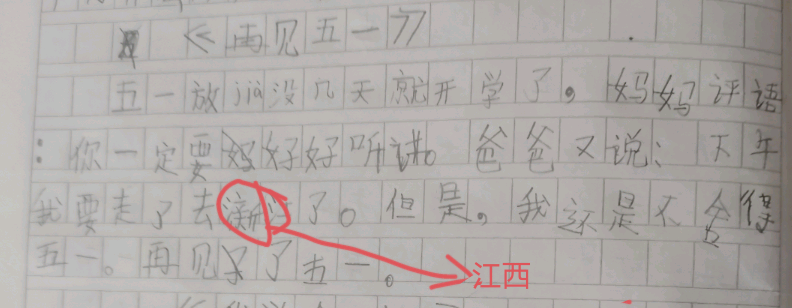 《再见五一》
五一放jià没几天就开学了。妈妈评语
：你一定要好好听讲。爸爸又说：下年
我要走了去了。但是。我还是不舍得
五一。再见了五一。
江西